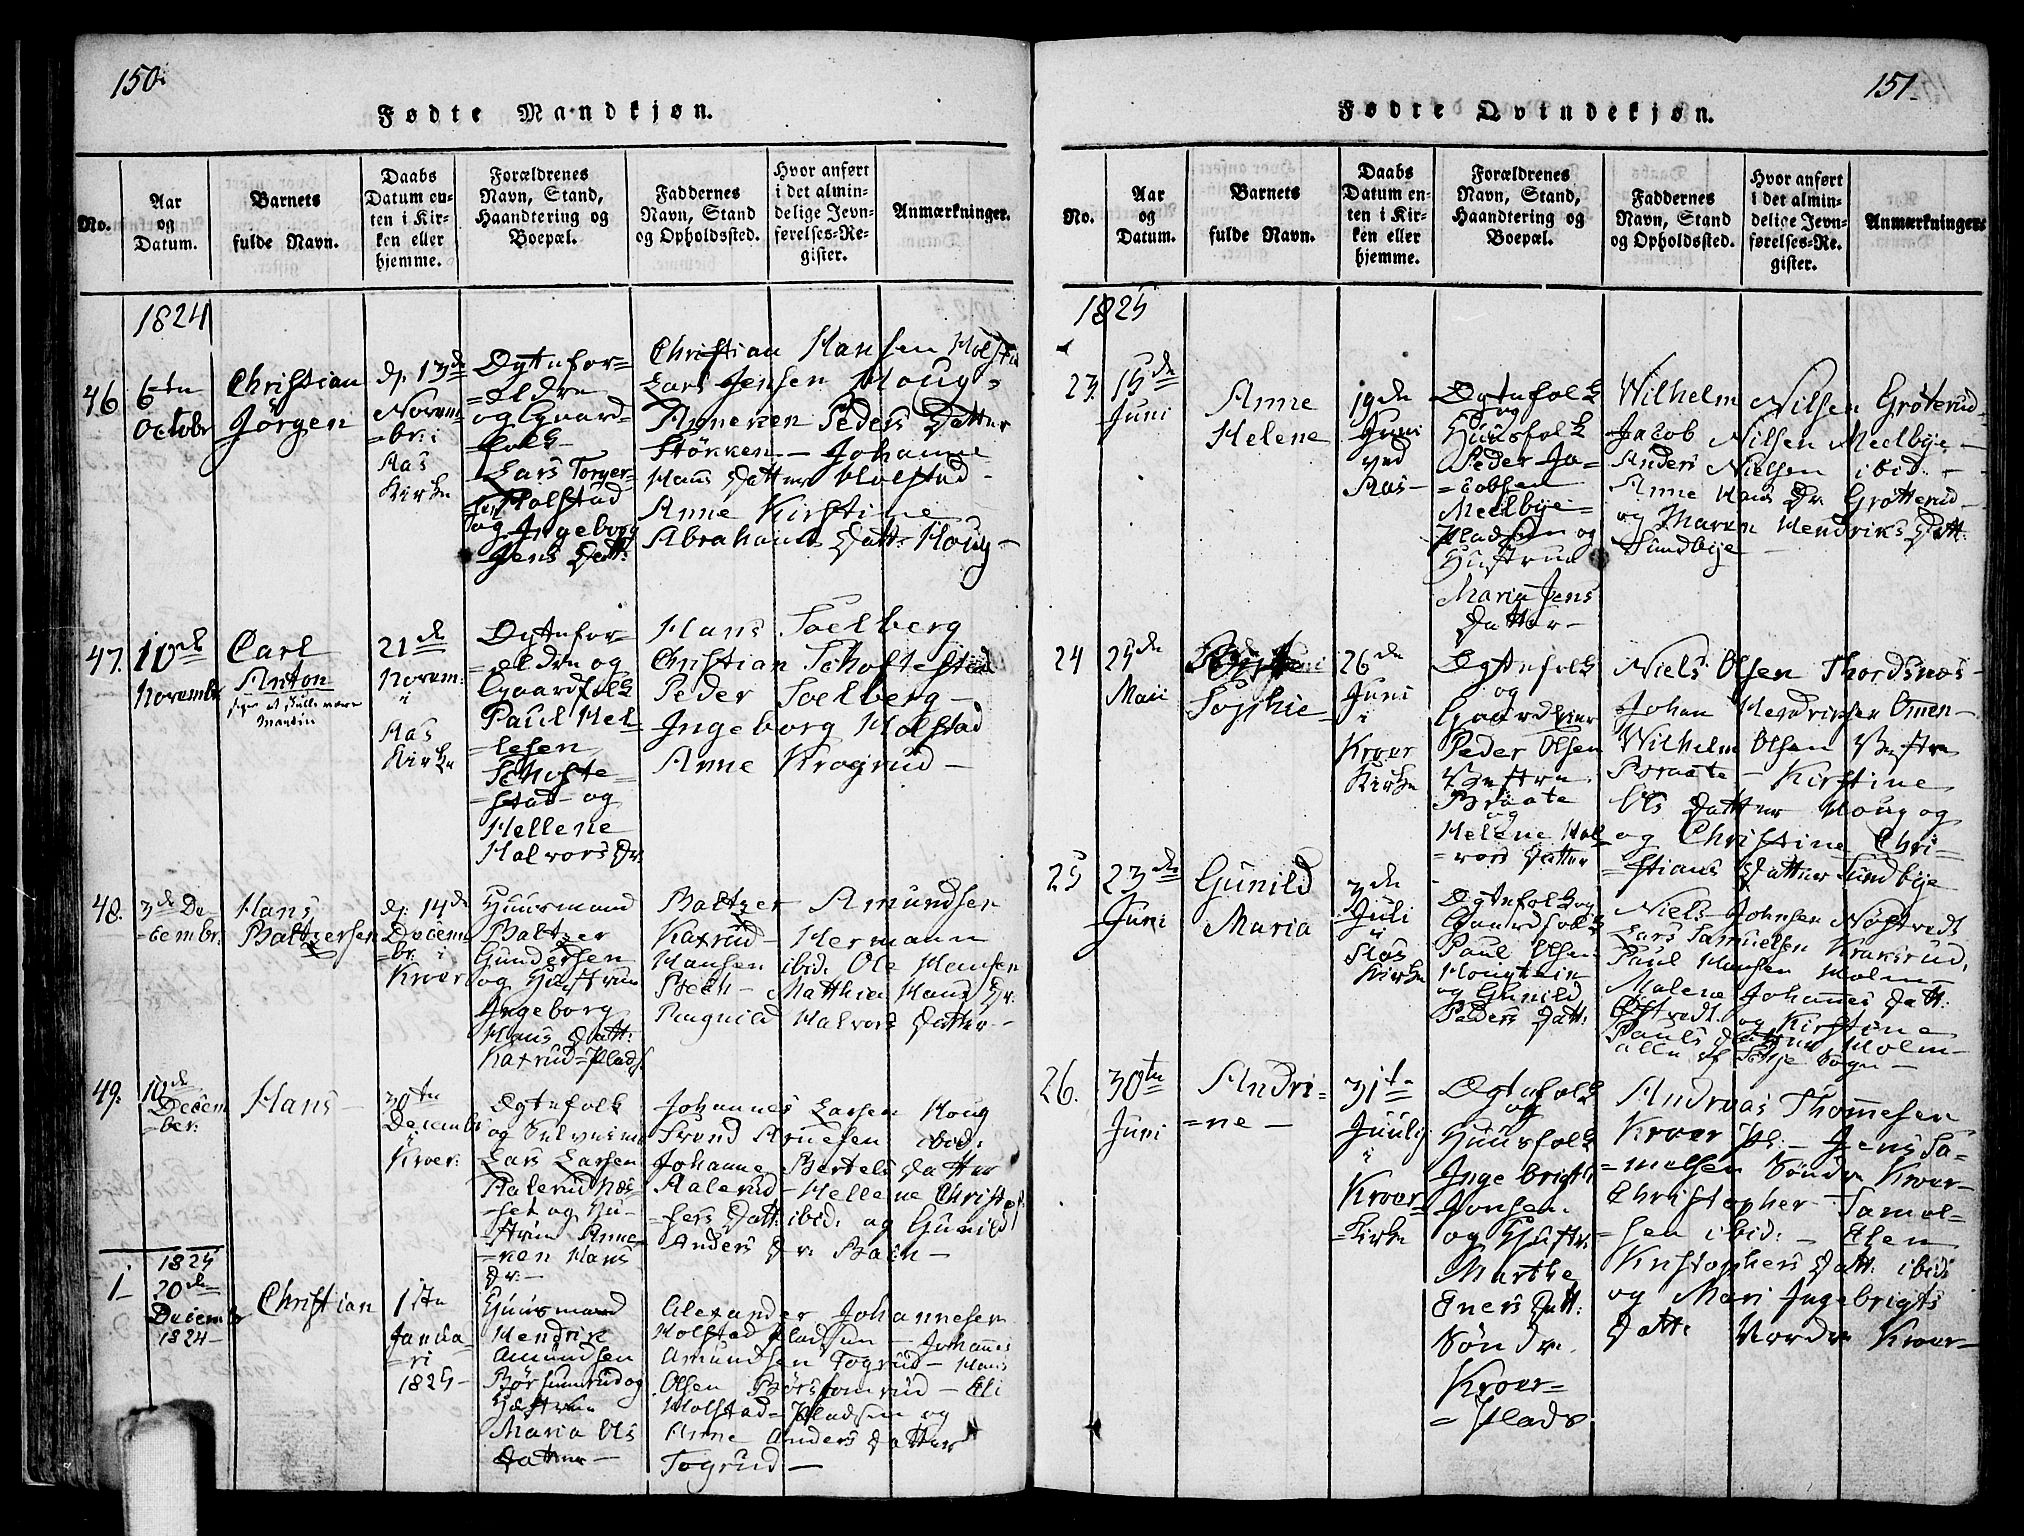 150.
Fødte Mandkjøn.
No.
Aar
og
Datum.
Barnets
fulde Navn.
Daabs
Datum en-
ten i Kir-
ken eller
hjemme.
Forældrenes
Navn, Stand,
Haandtering og
Boepæl.
Faddernes
Navn, Stand
og Opholdssted.
Hvor anført
i det almin-
delige Jevn-
førelses-Re-
gister.
Anmærkninger.
1824
46
6te
Octobr
Christian
Jörgen
d. 13de
Novem-
=br: i
Aas
Kirke
Ægtefor=
=eldre
og Gaard-
folk
Lars Torger-
sen Holstad
og Ingeborg
Jens Datt:
Christian Hansen Holstad
Lars Jensen Houg-
Anneken Peders Datter
Stökken - Johanne
Hans Datter Holstad -
Anne Kirstine
Abrahams Datt: Houg -
47.
10de
Novembr
Carl
Anton
21de
Novem:
i
Aas
Kirke
Ægtefor=
=eldre og
Gaardfolk
Paul Hel-
=lesen
Skofte-
=stad - og
Hellene
Halvors Dr.
Hans Solberg
Christian Skoftestad
Peder Solberg -
Ingeborg Holstad
Anne Krogrud -
48.
3de De-
=cembr.
Hans
Baltzersen
d: 14de
Decem
=br. i
Kroer
Huusmand
Baltzer
Gundersen
og Hustrue
Ingeborg
Hans Datt:
Kaxrud=Plads
Baltzer Amundsen
Kaxrud - Hermann
Hansen ibid: Ole Hansen
Steen - Matthia Hans Dr:
Ragnild Halvors Datter -
49.
10de
Decem
=ber:
Hans -
30te
Decembr
i
Kroer:
Ægtefolk
og Selveiere
Lars Larsen
Aalerud Næs-
=set og Hu-
strue Anne-
=ken Hans
Dr. -
Johannes Larsen Houg
Trond Arnesen ibid:
Johanne Bertels Datter
Aalerud - Hellene Christof-
=fers Datt: ibid: og Gunild
Anders Dr.
1825
1.
20de
Decembr
1824 -
Christian
1ste
Janua-
=ri
1825 -
Huusmand
Hendrik
Amundsen
Børsumrud og
Hustrue
Maria Ols
Datter -
Alexander Johannesen
Holstad Pladsen - Johannes
Amundsen Togrud - Hans
Olsen Börssomrud - Eli
Holstad - Pladsen og
Anne Anders Datter
Togrud -
151.
Fødte Qvindekjøn.
No.
Aar
og
Datum.
Barnets
fulde Navn.
Daabs
Datum en-
ten i Kir-
ken eller
hjemme.
Forældrenes
Navn, Stand,
Haandtering og
Boepæl.
Faddernes
Navn, Stand
og Opholdssted.
Hvor anført
i det almin-
delige Jevn-
førelses-Re-
gister.
Anmærkninger.
1825
23.
15de
Juni
Anne
Helene
19de
Juni
ved
Aas -
Ægtefolk
og
Huusfolk
Peder Ja-
=cobsen
Mellbye=
Pladsen og
Hustrue
Maria Jens
Datter -
Wilhelm Nilsen Gröterud
Jacob Nilsen Mellbye -
Anders Nielsen ibid. -
Anne Hans Dr. Grötterud -
og Maren Hendriks Datt:
Sundbye -
24
25de
Maii
Sophie -
26de
Juni
i
Kroer
Kirke
Ægtefolk
og
Gaardeier
Peder Olsen
Vestre
Braate
og
Helene Hal
=vors Datter
Niels Olsen Thordsnæs -
Johan Hendriksen Omen -
Wilhelm Olsen Vestre
Braate - Kirstine
Ols Datter Houg og
og Christine Chri-
=stians Datter Sundbye
25
23de
Juni
Gunild
Maria
3de
Juli
i
Aas
Kirke
Ægtefolk og
Gaardfolk
Paul Olsen
og Gunild
Peders Datt:
Niels Johnsen Nöstvedt
Lars Samuelsen Kraksrud,
Paul Hansen Holm
Malene Johannes Datt:
Östvedt. og Kirstine
Pauls Datter Holm -
alle af Schje Sogn -
26.
30te
Juni
Andri-
=ne -
31te
Juulij
i
Kroer
=Kirke
Ægtefolk
og
Huusfolk
Ingebrigt
Jonsen
og Hustr:
Marthe
Eners Datt:
Söndre
Kroer=
=Plads
Andreas Thomesen
Kroer Pl: - Jens Sa-
=muelsen Söndre Kroer -
Christopher Samol-
=sen ibid: - Elen
Kristophers Datt: ibid:
og Mari Ingebrigts
Datt: Nordre Kroer -